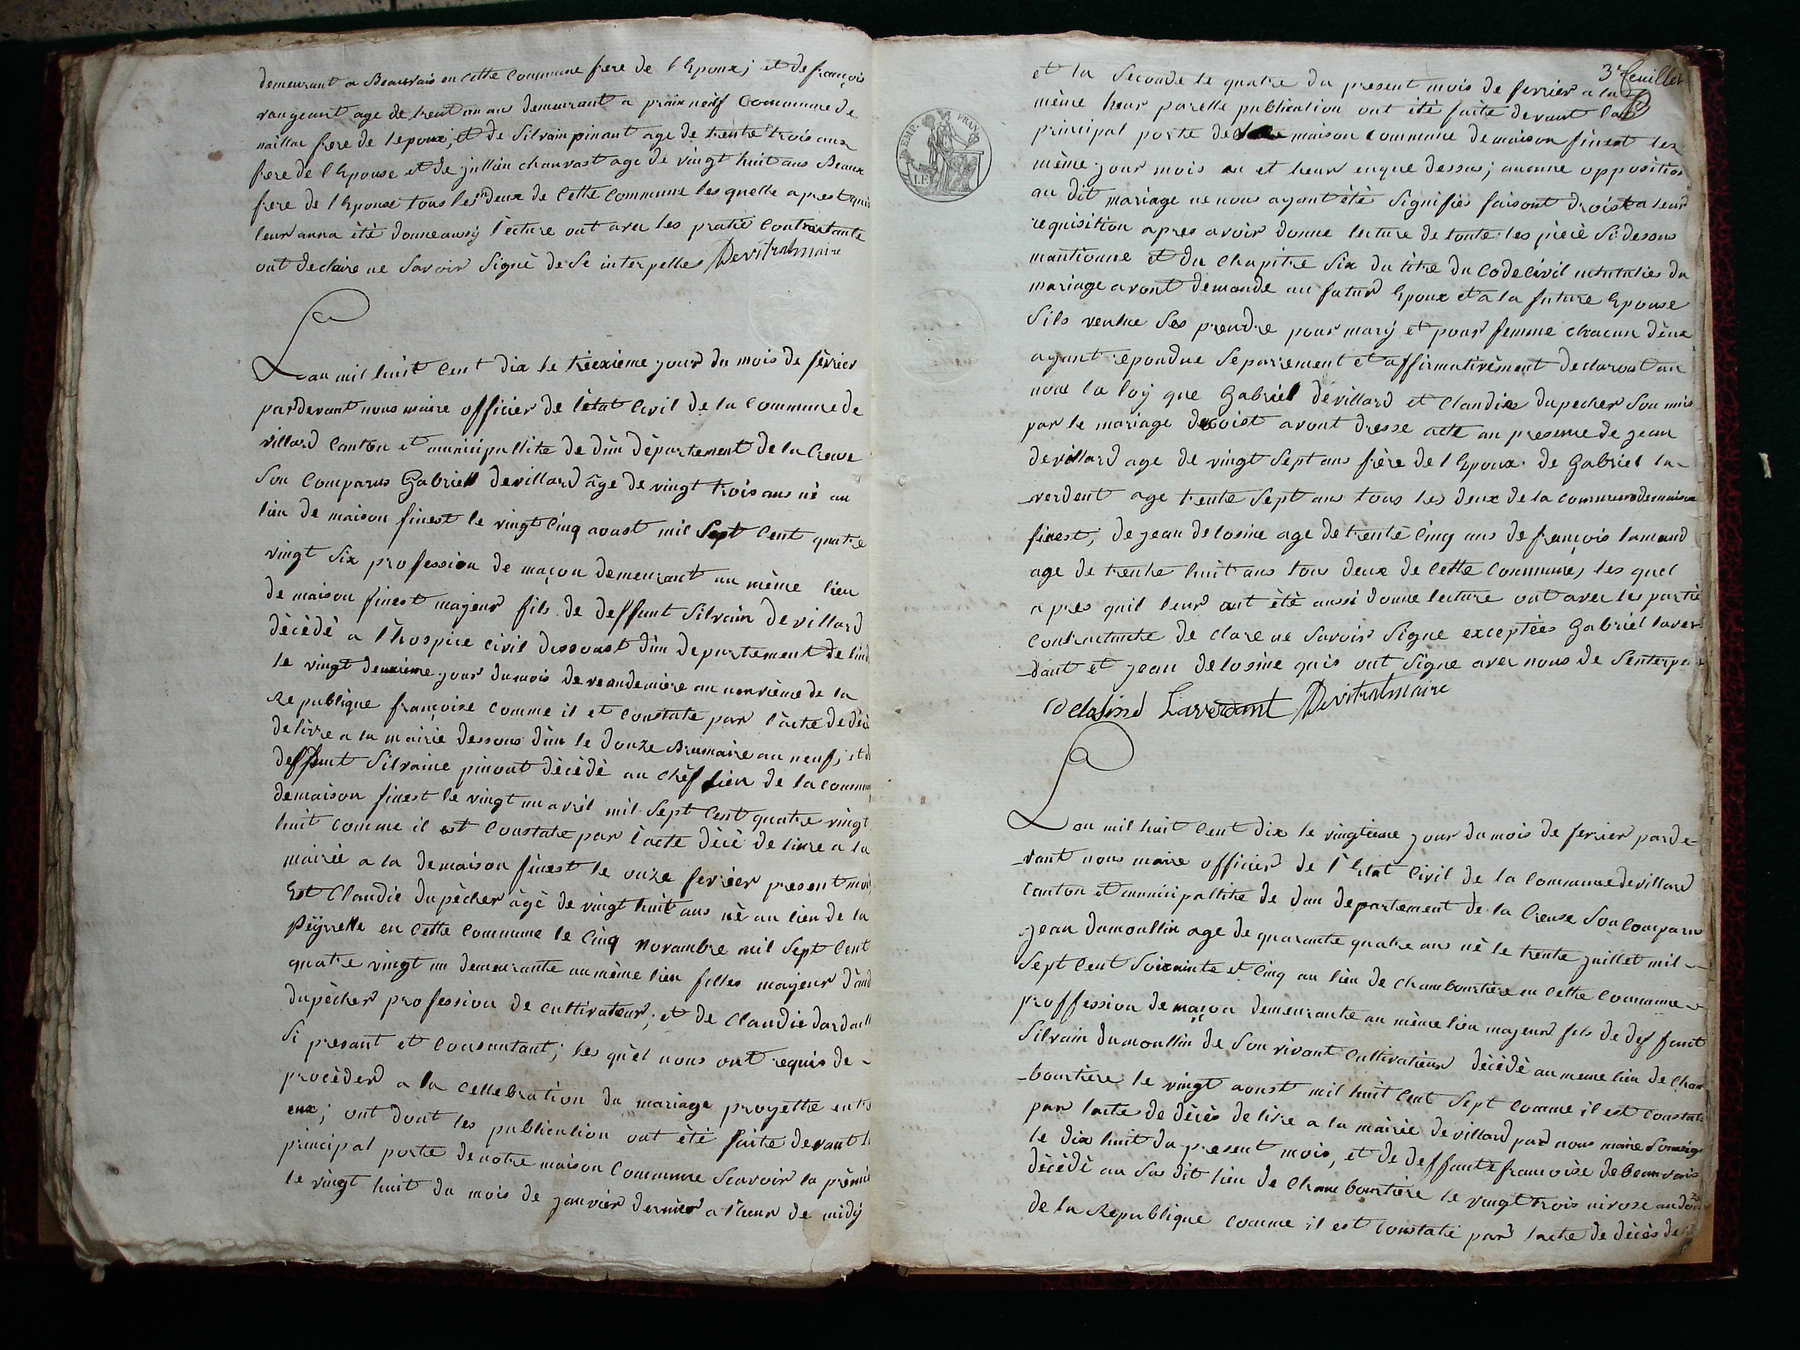 demeurant a Beauvais en cette Commune frere de l'Epoux; et de françois
vangeant age de trent un an demeurant a prain neuf Commune de
naillac frere de lepoux; et de Silvain pinaut age de trente trois ans
frere de l'Epouse et de jullien chauvast age de vingt huit ans Beaux
frere de l'Epouse tous les deux de Cette Commune les quelle apres
leur anna été donne aussy lecture ont avec les pratie Contractante
ont declaire ne Savoir Signè de Se interpelles Devitralmaire
Lan mil huit Cent dix le treixième jour du mois de fèvrier
pardevant nous maire officier de lètat Civil de la Commune de
villard Canton et municipallite de dun dèpartement de la Creuse
Son Comparus Gabriell devillard âge de vingt trois ans nè au
lieu de maison finest le vingt Cinq aoust mil Sept Cent quatre
vingt Six profession de maçon demeurant au mème lieu
de maison finest majeur fils de deffunt Silvain devillard
dècèdè a l'hospice Civil dissoust dun departement de lind
le vingt deuxieme jour du mois de vendemiere an neuvième de la
Republique françoise Comme il et Constate par l'acte de dècè
delivre a la mairie dessous dun le douze Brumaire an neuf; et de
deffunt Silvaine pinaut dècèdè au chef lieu de la Commune
demaison finest le vingt un avril mil Sept Cent quatre vingt
huit Comme il est Constate par l'acte dècè de livre a la
mairie a la demaison finest le onze fevrier present mois
Est Claudie dupècher âgè de vingt huit ans nè au lieu de la
Peÿrelle en Cette Commune le Cinq Novambre mil Sept Cent
quatre vingt un demeurante au mème lieu filles majeur d'and
dupècher profession de Cultivateur; et de Claudie dardaill
Si presant et Consantant; les quèl nous ont requis de -
procèder a la Cellebration du mariage proyette entr
eux; ont dont les publication ont èté faite devant l
principal porte denotre maison Commune Scavoir la prèmie
le vingt huit du mois de janvier dernier a l'heur de midÿ
3e feuillet
et la Seconde le quatre du present mois de fevrier a la
même heur parelle publication ont été faite devant la
principal porte de la maison Commune demaison finest les
mème jour mois an et heur en que dessus; aucune opposition
au dit mariage ne nous ayant été Signifiés faisont droist a leur
requisition apres avoir donne lecture de toute les pièce Si dessus
mantionne et du Chapitre Six du titre du Code Civil intitulies du
mariage avont demande au futur Epoux et a la future Epouse
Sils veulue Ses prendre pour marÿ et pour femme chacun deux
ayant repondue Separrement et affirmativement declaront au
nom la loy que Gabriel devillard et Claudie dupecher Son unis
par le mariage de quoist avont dresse acte au presence de jean
devillard age de vingt Sept ans frère de l'Epoux de Gabriel la-
-verdent age trente Sept ans tous les deux de la commune demaison
finest; de jean delosine age de trente Cinq ans de françois lamaud
age de trente huit ans tous deux de Cette Commune, les quel
apres quil leur ont été aussi donne lecture ont avec les partie
Contractante de clare ne Savoir Signe exceptées Gabriel laver
-dant et jean delosine quis ont Signe avec nous de Senterpe
delosine Laverdant Devitralmaire
Lan mil huit Cent dix le vingtieme jour du mois de fevrier parde-
-vant nous maire officier de l'Etat Civil de la Commune devillard
Canton et municipallite de dun departement de la Creuse Son Comparu
jean dumoullin age de quarante quatre ans nè le trente juillet mil -
Sept Cent Soixainte et Cinq au lieu de chamboursière en Cette Commune
proffession de maçon demeurante au mème lieu majeur fils de deffunt
Silvain dumoullin de Son vivant Cultivateur dècèdè au meme lieu de Cham
-boursière le vingt aoust mil huit Cent Sept Comme il est Constate
par lacte de dècès de livre a la mairie devillard par nous maire Sousigne
le dix huit du present mois, et de deffunte francoise debeauvais
dècèdè au Sus dit lieu de Chamboursière le vingt trois nivose an dou
de la Republique Comme il est Constate par lacte de dècès de
EMP. FRAN.